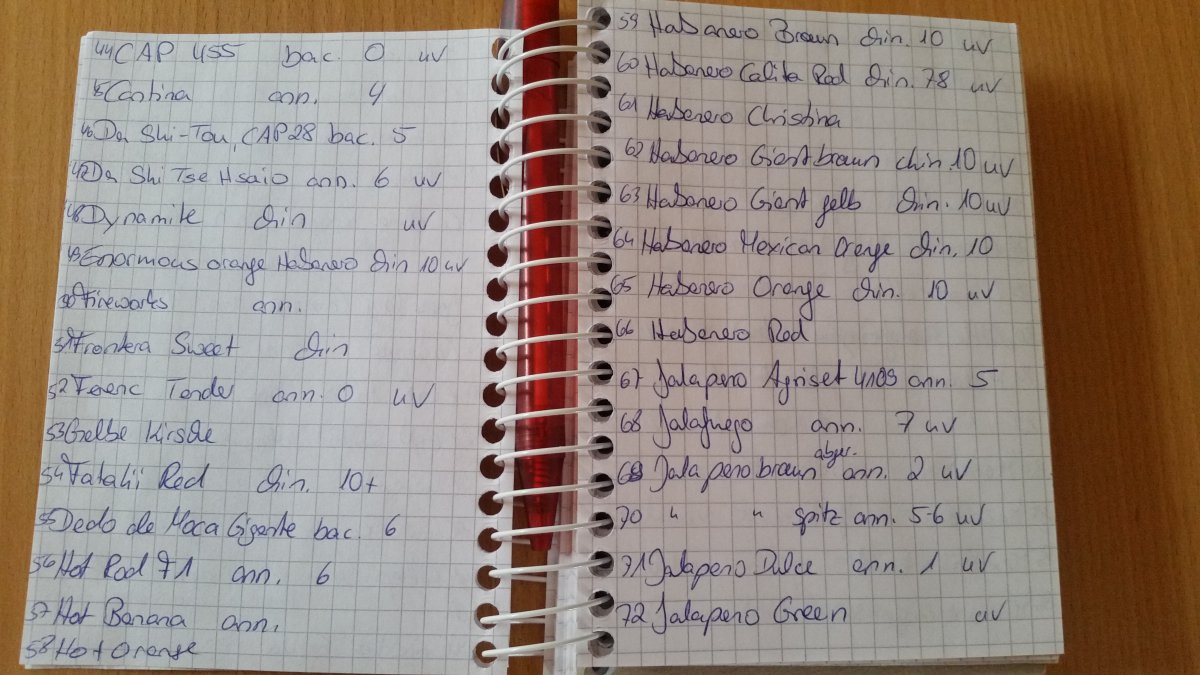 44 CAP 455 bac. 0 uv
45 Cantina ann. 4
46 Da Shi-Tou, CAP28 bac. 5
47 Da Shi Tse Hsaio ann. 6 uv
48 Dynamite chin uv
49 Enormous orange Habanero chin 10 uv
50 Fireworks ann.
51 Frontera Sweet chin
52 Ferenc Tender ann. 0 uv
53 Gelbe Kirsche
54 Fatalii Red chin. 10+
55 Dedo de Moca Gigante bac. 6
56 Hot Rod 71 ann. 6
57 Hot Banana ann.
58 Hot Orange
59 Habanero Braun chin. 10 uv
60 Habanero Calita Red chin. 78 uv
61 Habanero Christina
62 Habanero Giant braun chin. 10 uv
63 Habanero Giant gelb chin. 10 uv
64 Habanero Mexican Orange chin. 10
65 Habanero Orange chin. 10 uv
66 Habanero Red
67 Jalapero Agriset 4109 ann. 5
68 Jalafuego ann. 7 uv
69 Jalapero braun abger. ann. 2 uv
70 " " spitz ann. 5-6 uv
71 Jalapero Dulce ann. 1 uv
72 Jalapero Green uv